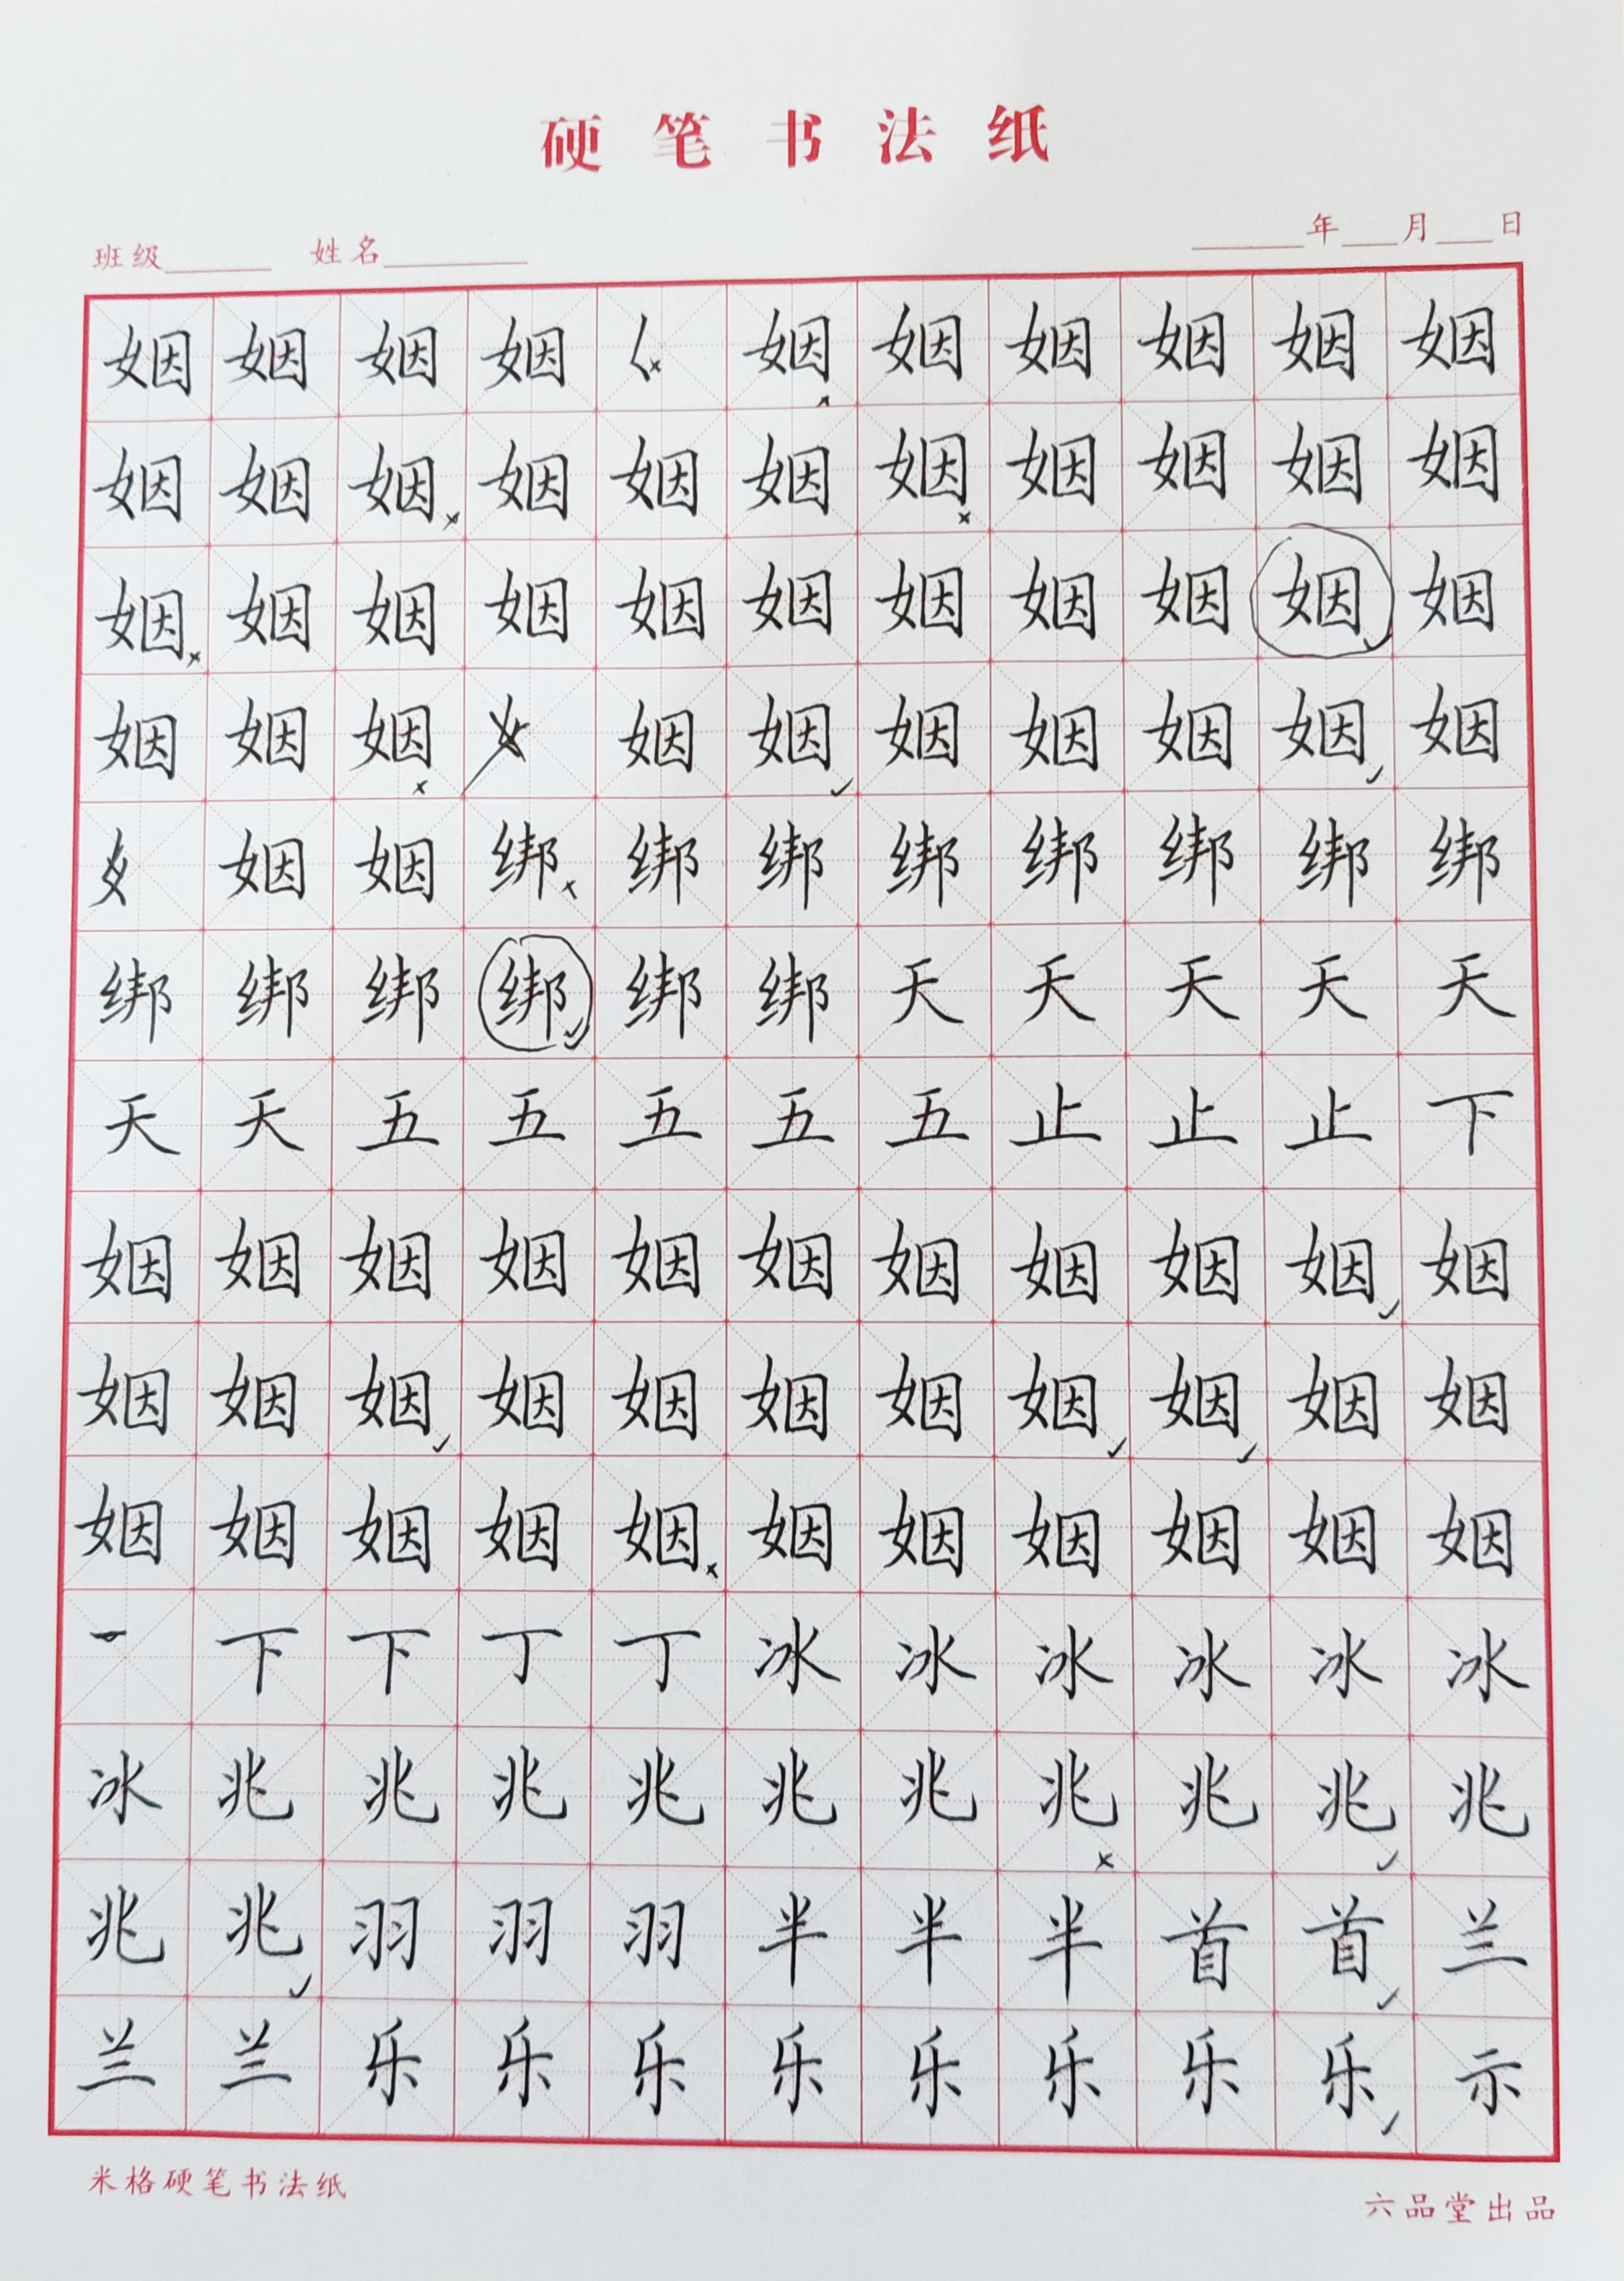 硬笔书法纸
班级 姓名 年 月 日
姻姻姻姻姻姻姻姻姻姻
姻姻姻姻姻姻姻姻姻姻姻
姻姻姻姻姻姻姻姻姻姻姻
姻姻姻姻姻姻姻姻姻姻
姻姻绑绑绑绑绑绑绑绑
绑绑绑绑绑绑天天天天天
天天五五五五五止止止下
姻姻姻姻姻姻姻姻姻姻姻
姻姻姻姻姻姻姻姻姻姻姻
姻姻姻姻姻姻姻姻姻姻姻
下下丁丁冰冰冰冰冰冰
冰兆兆兆兆兆兆兆兆兆兆
兆兆羽羽羽半半半首首兰
兰兰乐乐乐乐乐乐乐乐示
米格硬笔书法纸
六品堂出品